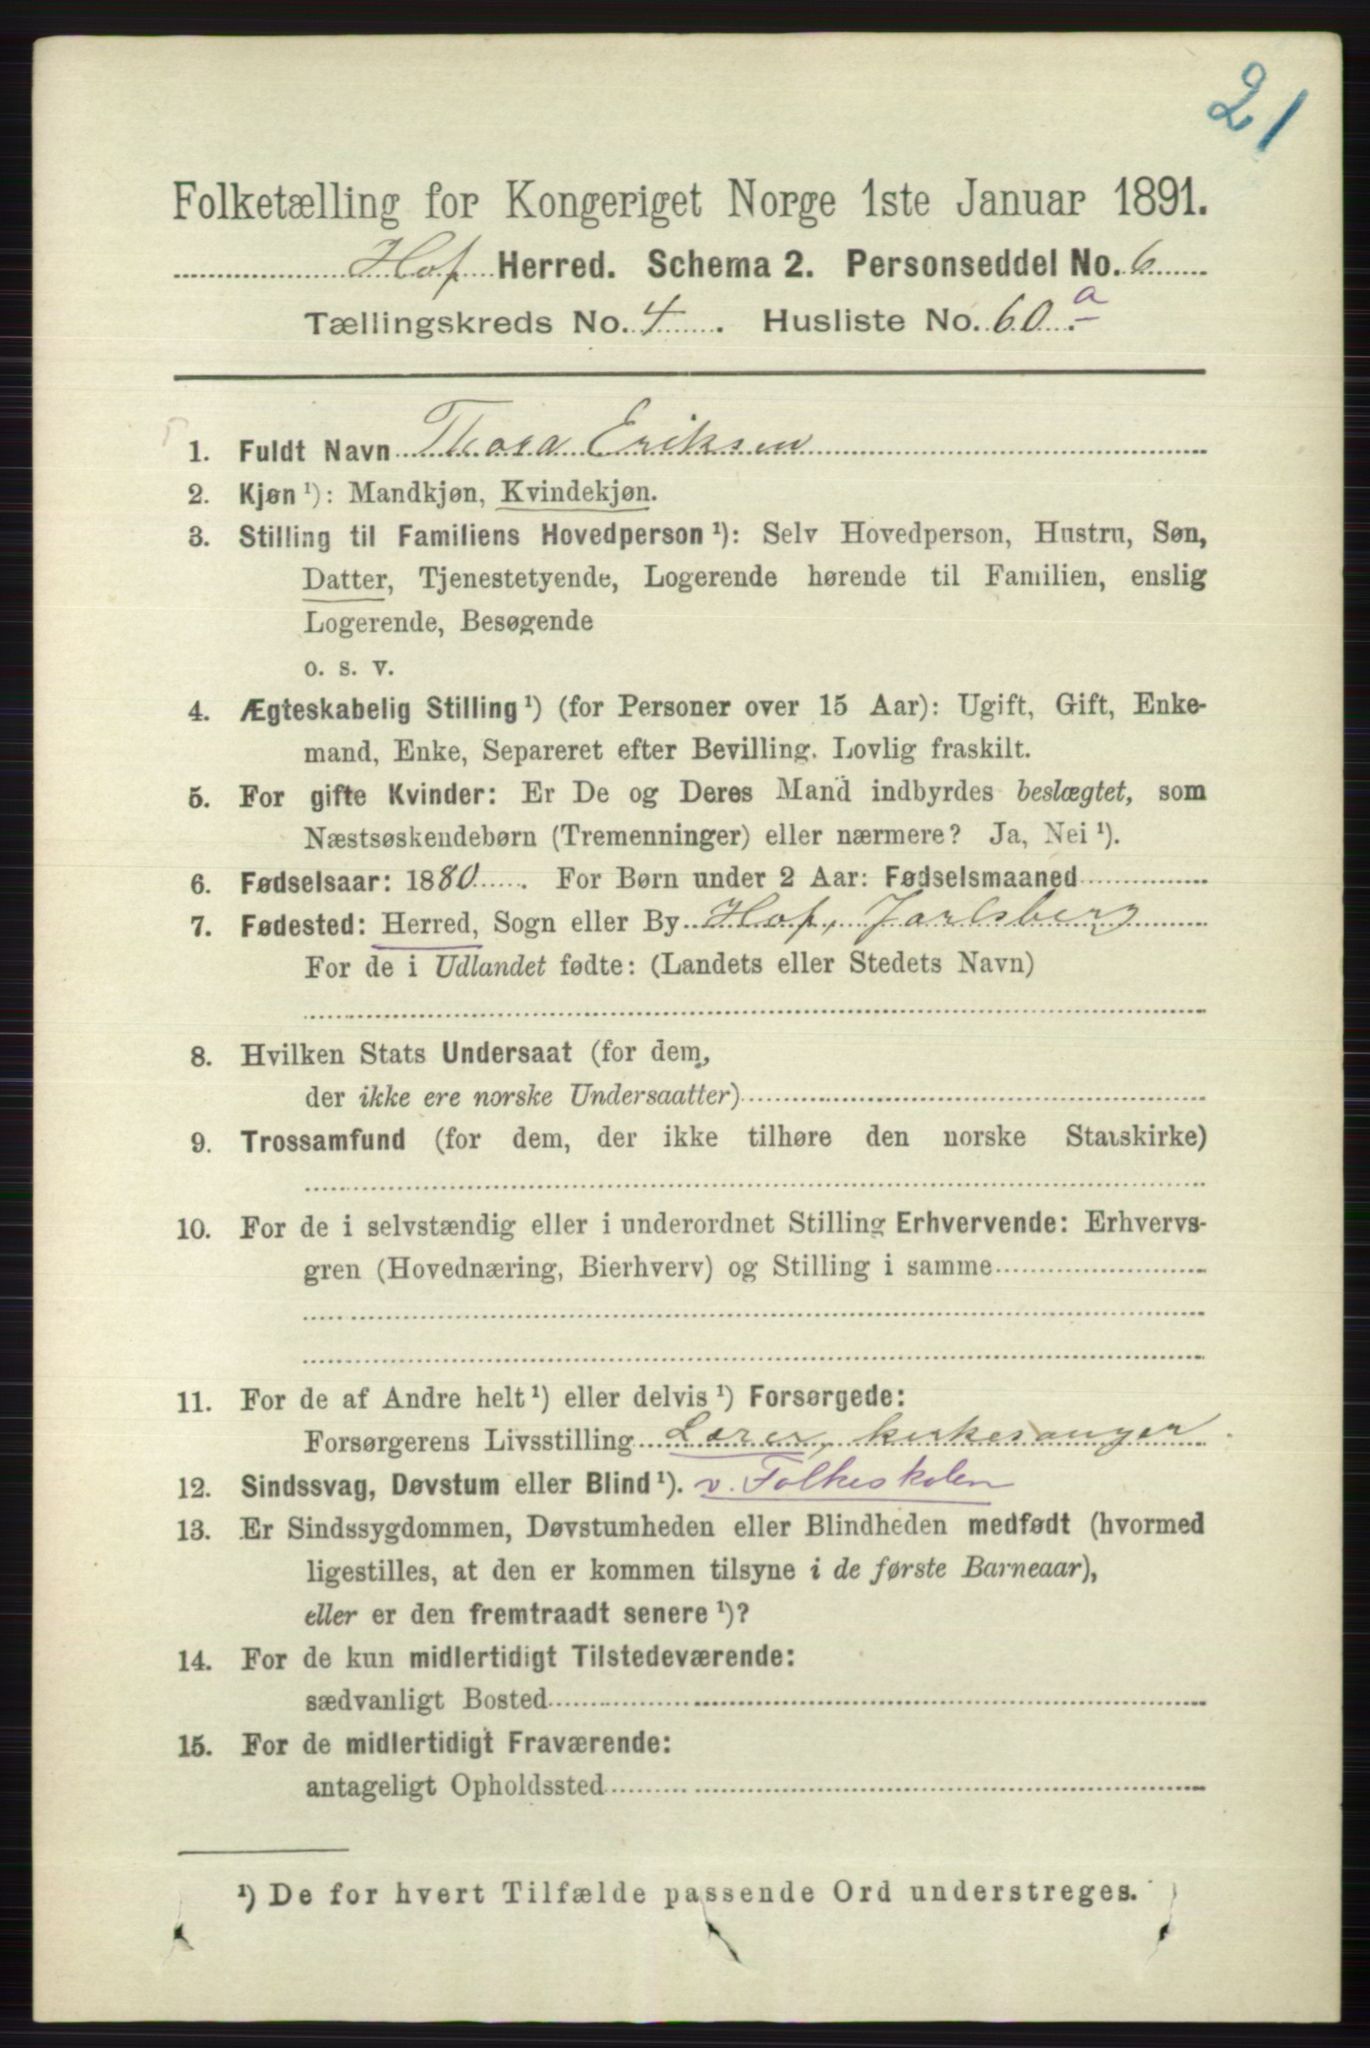 21
Folketælling for Kongeriget Norge 1ste Januar 1891.
Hof Herred. Schema 2. Personseddel No. 6
Tællingskreds No. 4. Husliste No. 60.a
1. Fuldt Navn Thora Eriksen
2. Kjøn ¹): Mandkjøn, Kvindekjøn.
3. Stilling til Familiens Hovedperson ¹): Selv Hovedperson, Hustru, Søn,
Datter, Tjenestetyende, Logerende hørende til Familien, enslig
Logerende, Besøgende
o. s. v.
4. Ægteskabelig Stilling ¹) (for Personer over 15 Aar): Ugift, Gift, Enke-
mand, Enke, Separeret efter Bevilling. Lovlig fraskilt.
5. For gifte Kvinder: Er De og Deres Mand indbyrdes beslægtet, som
Næstsøskendebørn (Tremenninger) eller nærmere? Ja, Nei ¹).
6. Fødselsaar: 1880. For Børn under 2 Aar: Fødselsmaaned
7. Fødested: Herred, Sogn eller By Hof, Jarlsberg
For de i Udlandet fødte: (Landets eller Stedets Navn)
8. Hvilken Stats Undersaat (for dem,
der ikke ere norske Undersaatter)
9. Trossamfund (for dem, der ikke tilhøre den norske Statskirke)
10. For de i selvstændig eller i underordnet Stilling Erhvervende: Erhvervs-
gren (Hovednæring, Bierhverv) og Stilling i samme
11. For de af Andre helt ¹) eller delvis ¹) Forsørgede:
Forsørgerens Livsstilling Lærer, kirkesanger
12. Sindssvag, Døvstum eller Blind ¹). v. Folkeskolen
13. Er Sindssygdommen, Døvstumheden eller Blindheden medfødt (hvormed
ligestilles, at den er kommen tilsyne i de første Barneaar),
eller er den fremtraadt senere ¹)?
14. For de kun midlertidigt Tilstedeværende:
sædvanligt Bosted
15. For de midlertidigt Fraværende:
antageligt Opholdssted
¹) De for hvert Tilfælde passende Ord understreges.